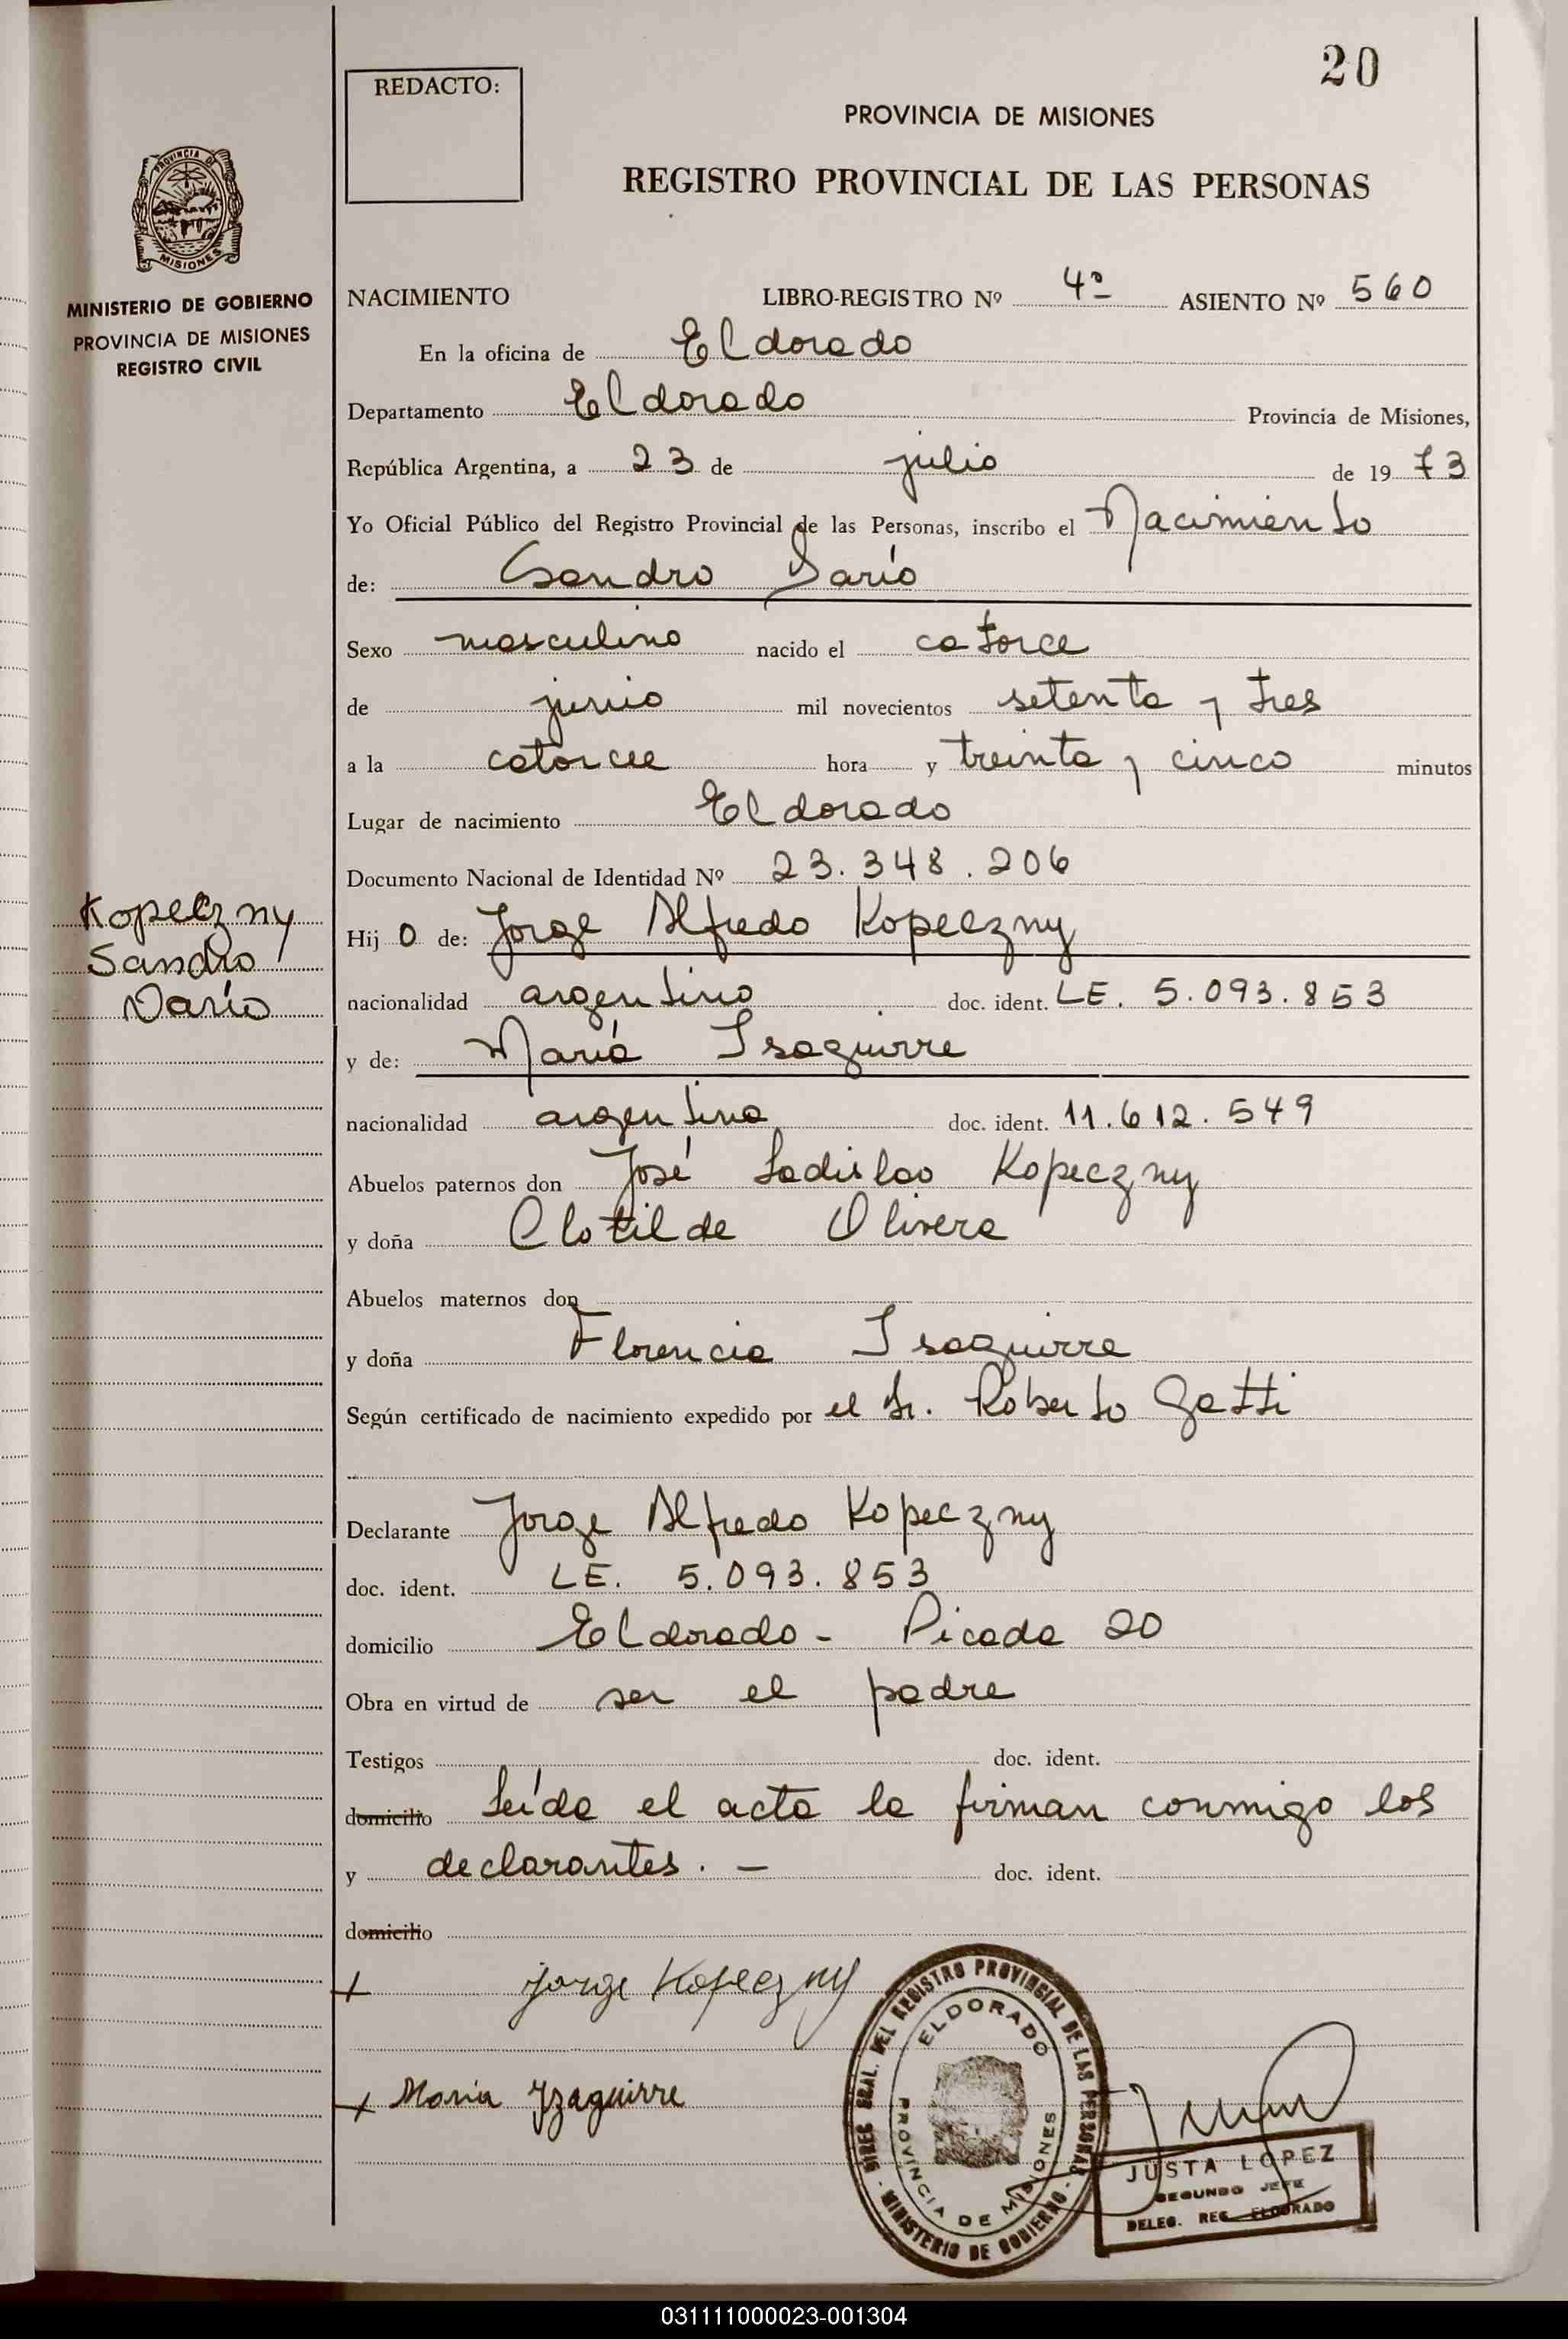 20
REDACTO:
PROVINCIA DE MISIONES
REGISTRO PROVINCIAL DE LAS PERSONAS
PROVINCIA DE
MISIONES
MINISTERIO DE GOBIERNO
PROVINCIA DE MISIONES
REGISTRO CIVIL
NACIMIENTO LIBRO-REGISTRO Nº 4º ASIENTO Nº 560
En la oficina de Eldorado
Departamento Eldorado Provincia de Misiones,
República Argentina, a 23 de julio de 1973
Yo Oficial Público del Registro Provincial de las Personas, inscribo el Nacimiento
de: Sandro Darío
Sexo masculino nacido el catorce
de junio mil novecientos setenta y tres
a la catorce hora y treinta y cinco minutos
Lugar de nacimiento Eldorado
Documento Nacional de Identidad Nº 23.348.206
Kopeczny
Sandro
Darío
Hijo de: Jorge Alfredo Kopeczny
nacionalidad argentino doc. ident. LE. 5.093.853
y de: María Isaguirre
nacionalidad argentina doc. ident. 11.612.549
Abuelos paternos don José Ladislao Kopeczny
y doña Clotilde Olivera
Abuelos maternos don
y doña Florencia Isaguirre
Según certificado de nacimiento expedido por el Dr. Roberto Gatti
Declarante Jorge Alfredo Kopeczny
doc. ident. LE. 5.093.853
domicilio Eldorado - Picada 20
Obra en virtud de ser el padre
Testigos doc. ident.
domicilio Leída el acta la firman conmigo los
y declarantes. - doc. ident.
domicilio
Jorge Kopeczny
María Yzaguirre
DIREC. GRAL. DEL REGISTRO PROVINCIAL DE LAS PERSONAS
- MINISTERIO DE GOBIERNO -
ELDORADO
PROVINCIA DE MISIONES
JUSTA LOPEZ
SEGUNDO JEFE
DELEG. REG. ELDORADO
031111000023-001304